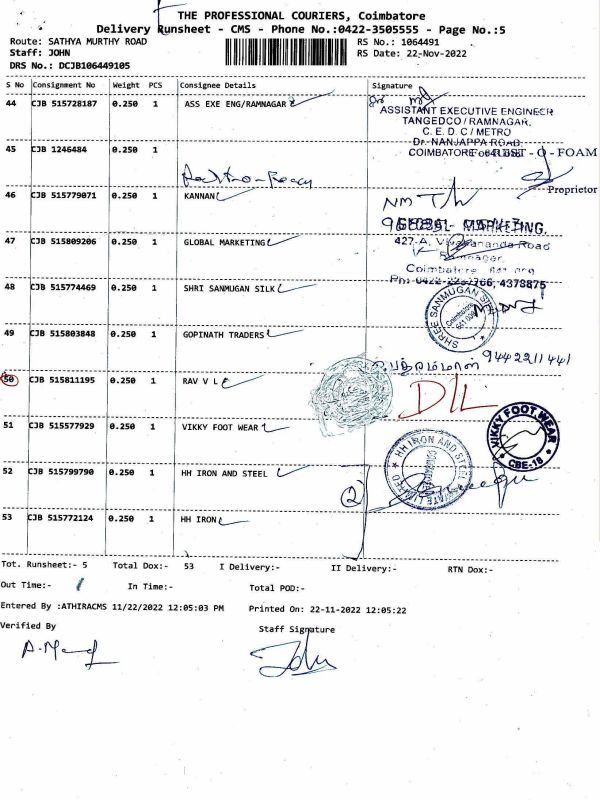 THE PROFESSIONAL COURIERS, Coimbatore
Delivery Runsheet - CMS - Phone No.:0422-3505555 - Page No.:5
Route: SATHYA MURTHY ROAD
Staff: JOHN
DRS No.: DCJB106449105
RS No.: 1064491
RS Date: 22-Nov-2022
S No Consignment No Weight PCS Consignee Details Signature
44 CJB 515728187 0.250 1 ASS EXE ENG/RAMNAGAR
ASSISTANT EXECUTIVE ENGINEER
TANGEDCO / RAMNAGAR,
C. E. D. C / METRO
Dr. NANJAPPA ROAD
COIMBATORE
45 CJB 1246484 0.250 1
REST - O - FOAM
Proprietor
46 CJB 515779071 0.250 1 KANNAN
47 CJB 515809206 0.250 1 GLOBAL MARKETING
GLOBAL MARKETING,
427-A, Vivekananda Road
Ramnagar,
Coimbatore
4378875
48 CJB 515774469 0.250 1 SHRI SANMUGAN SILK
SHREE SANMUGAN SILK
Coimbatore
49 CJB 515803848 0.250 1 GOPINATH TRADERS
9442211441
50 CJB 515811195 0.250 1 RAV V L E
D/L
51 CJB 515577929 0.250 1 VIKKY FOOT WEAR
VIKKY FOOT WEAR
CBE-18
52 CJB 515799790 0.250 1 HH IRON AND STEEL
HH IRON AND STEEL PRIVATE LIMITED
2
53 CJB 515772124 0.250 1 HH IRON
Tot. Runsheet:- 5 Total Dox:- 53 I Delivery:- II Delivery:- RTN Dox:-
Out Time:- In Time:- Total POD:-
Entered By :ATHIRACMS 11/22/2022 12:05:03 PM Printed On: 22-11-2022 12:05:22
Verified By Staff Signature
John